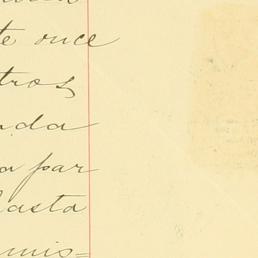 te once
tros
nda
a par
hasta
mis=